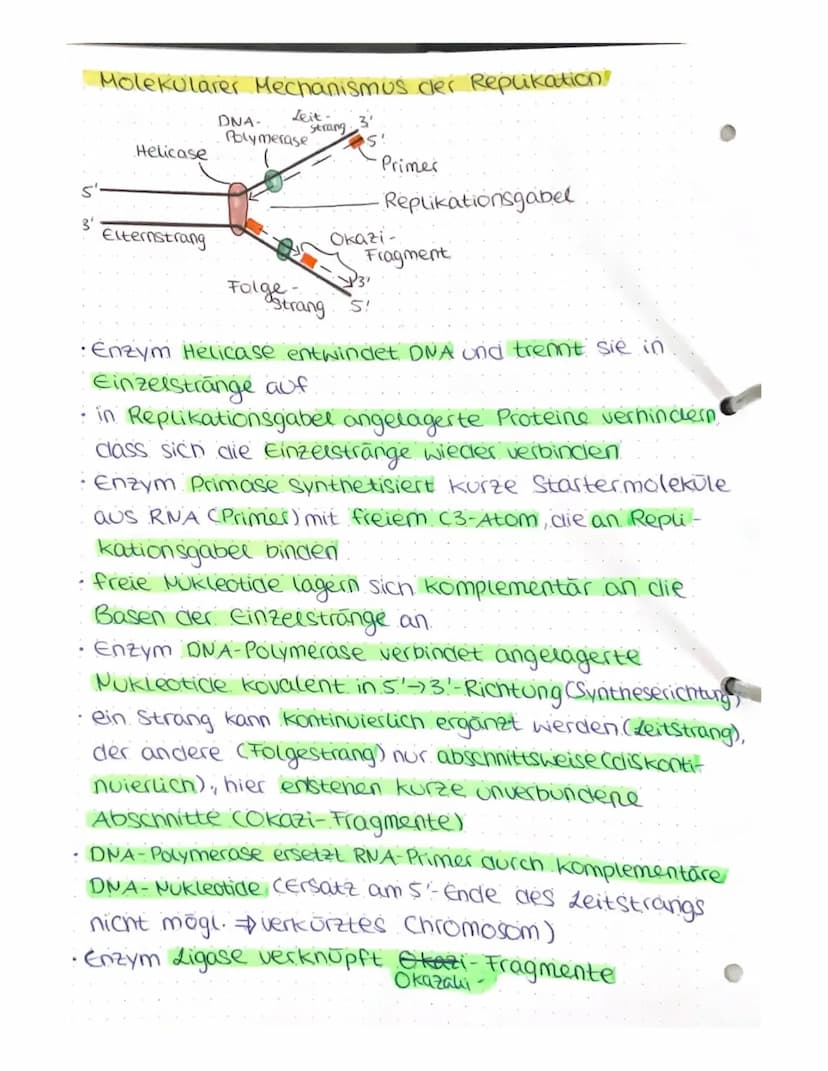 Molekularer Mechanismus der Replikation
DNA-
Polymerase
Leit-
strang
3'
5'
Helicase
Primer
5'
Replikationsgabel
3'
Elternstrang
Okazi-
Fragment
Folge-
strang
3'
5'
· Enzym Helicase entwindet DNA und trennt sie in
Einzelstränge auf
· in Replikationsgabel angelagerte Proteine verhindern,
dass sich die Einzelstränge wieder verbinden
· Enzym Primase synthetisiert kurze Startermoleküle
aus RNA (Primer) mit freiem C3-Atom, die an Repli-
kationsgabel binden
· freie Nukleotide lagern sich komplementär an die
Basen der Einzelstränge an
· Enzym DNA-Polymerase verbindet angelagerte
Nukleotide kovalent in 5'→3'-Richtung (Syntheserichtung)
· ein Strang kann kontinuierlich ergänzt werden (Leitstrang),
der andere (Folgestrang) nur abschnittsweise (diskonti-
nuierlich), hier enstehen kurze unverbundene
Abschnitte (Okazi-Fragmente)
· DNA-Polymerase ersetzt RNA-Primer durch komplementäre
DNA-Nukleotide (Ersatz am 5'-Ende des Leitstrangs
nicht mögl. ⇒ verkürztes Chromosom)
· Enzym Ligase verknüpft Okazi-Fragmente
Okazaki-